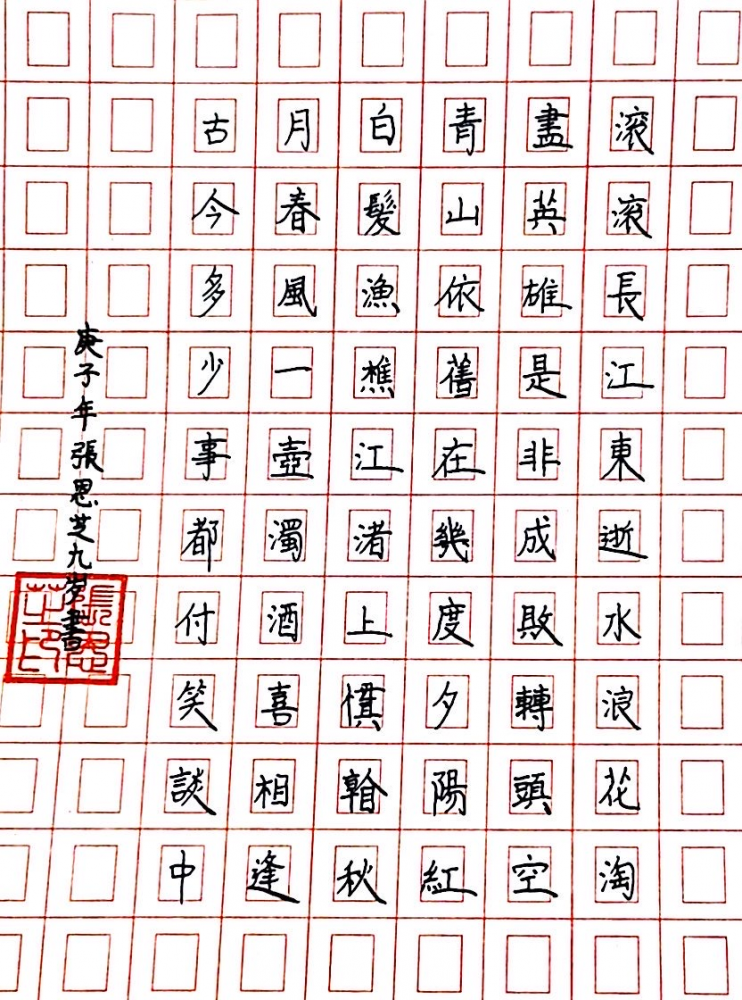 滾滾長江東逝水浪花淘
盡英雄是非成敗轉頭空
青山依舊在幾度夕陽紅
白髮漁樵江渚上慣看秋
月春風一壺濁酒喜相逢
古今多少事都付笑談中
庚子年張思芝九歲書
張思芝印